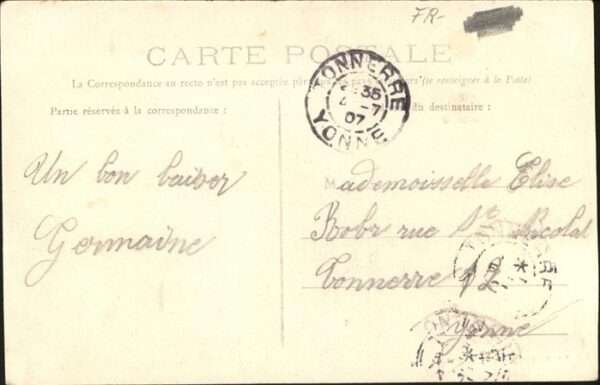 FR-
CARTE POSTALE
La Correspondance au recto n'est pas acceptée par (se renseigner à la Poste)
Partie réservée à la correspondance:
du destinataire:
TONNERRE
35
-7
07
YONNE
Un bon baiser
Germaine
Mademoisselle Elise
Bobr rue St Nicolas
Tonnerre 12
Yonne